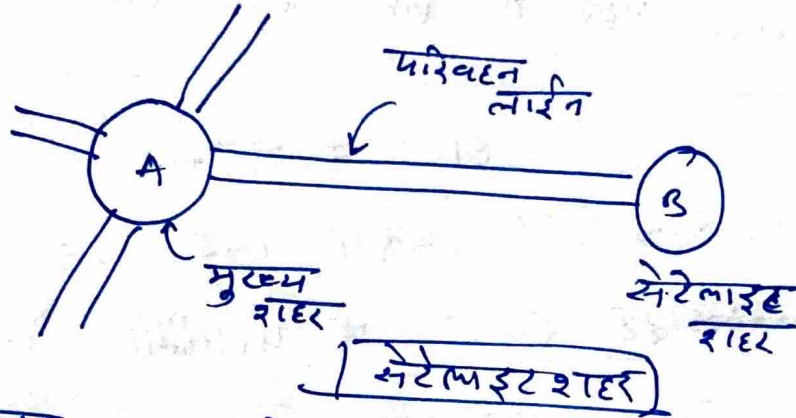 परिवहन
लाईन
A
B
मुख्य
शहर
सेटेलाइट
शहर
सेटेलाइट शहर